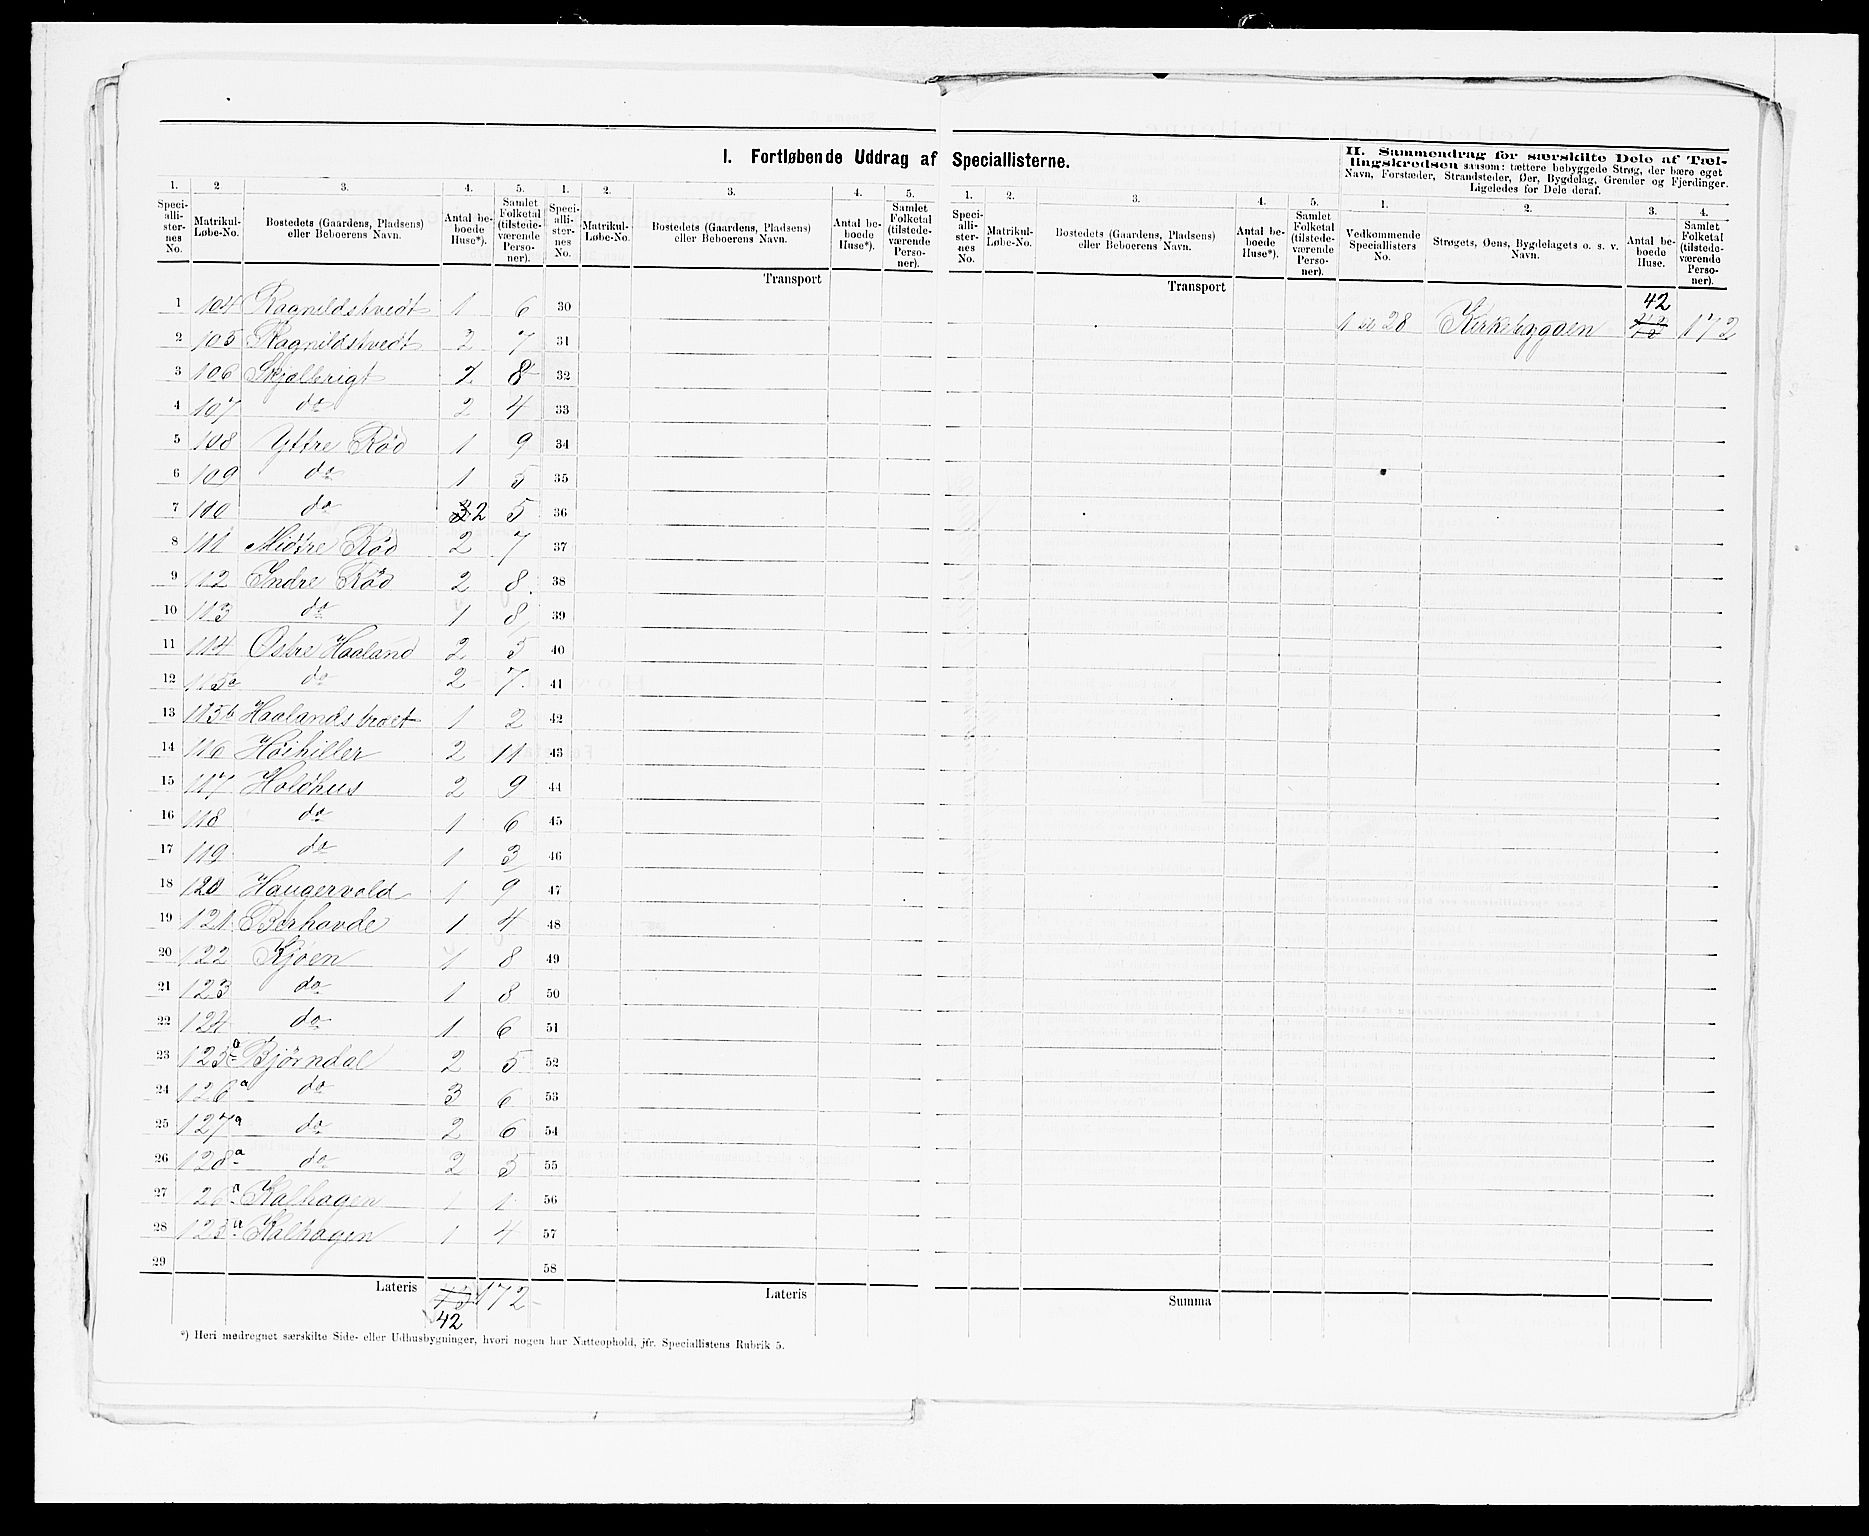 I. Fortløbende Uddrag af Speciallisterne.
II. Sammendrag for særskilte Dele af Tæl-
lingskredsen saasom: tættere bebyggede Strøg, der bære eget
Navn, Forstæder, Strandsteder, Øer, Bygdelag, Grender og Fjerdinger.
Ligeledes for Dele deraf.
1. 2 3. 4. 5. 1. 2. 3. 4. 5. 1. 2. 3. 4. 5. 1. 2. 3. 4.
Speci-alli-ster-nes No. Matrikul-Løbe-No. Bostedets (Gaardens, Pladsens) eller Beboerens Navn. Antal be-boede Huse*). Samlet Folketal (tilstede-værende Perso-ner).
Speci-alli-ster-nes No. Matrikul-Løbe-No. Bostedets (Gaardens, Pladsens) eller Beboerens Navn. Antal be-boede Huse*). Samlet Folketal (tilstede-værende Perso-ner).
Speci-alli-ster-nes No. Matrikul-Løbe-No. Bostedets (Gaardens, Pladsens) eller Beboerens Navn. Antal be-boede Huse*). Samlet Folketal (tilstede-værende Perso-ner).
Vedkommende Speciallisters No. Strøgets, Øens, Bygdelagets o. s. v. Navn. Antal be-boede Huse. Samlet Folketal (tilstede-værende Perso-ner).
Transport Transport
1 104 Ragnildstvedt 1 6 30
42
1 til 28 Kirkebygden 172
2 105 Ragnildstvedt 2 7 31
3 106 Skjolbrigt 2 8 32
4 107 do 2 4 33
5 108 Yttre Rød 1 9 34
6 109 do 1 5 35
7 110 do 3 2 5 36
8 111 Midtre Rød 2 7 37
9 112 Indre Rød 2 8 38
10 113 do 1 8 39
11 114 Østre Haaland 2 5 40
12 115a do 2 7 41
13 115b Haalandsbraet 1 2 42
14 116 Høihiller 2 11 43
15 117 Holdhus 2 9 44
16 118 do 1 6 45
17 119 do 1 3 46
18 120 Haugervold 1 9 47
19 121 Berhovde 1 4 48
20 122 Kjøen 1 8 49
21 123 do 1 8 50
22 124 do 1 6 51
23 125a Bjørndal 2 5 52
24 126a do 3 6 53
25 127a do 2 6 54
26 128a do 2 5 55
27 126a Kalhagen 1 1 56
28 125a Kalhagen 1 4 57
29 58
Lateris 172 Lateris Summa
42
*) Heri medregnet særskilte Side- eller Udhusbygninger, hvori nogen har Natteophold, jfr. Speciallistens Rubrik 5.